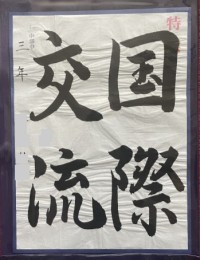 特
国際
交流
三年